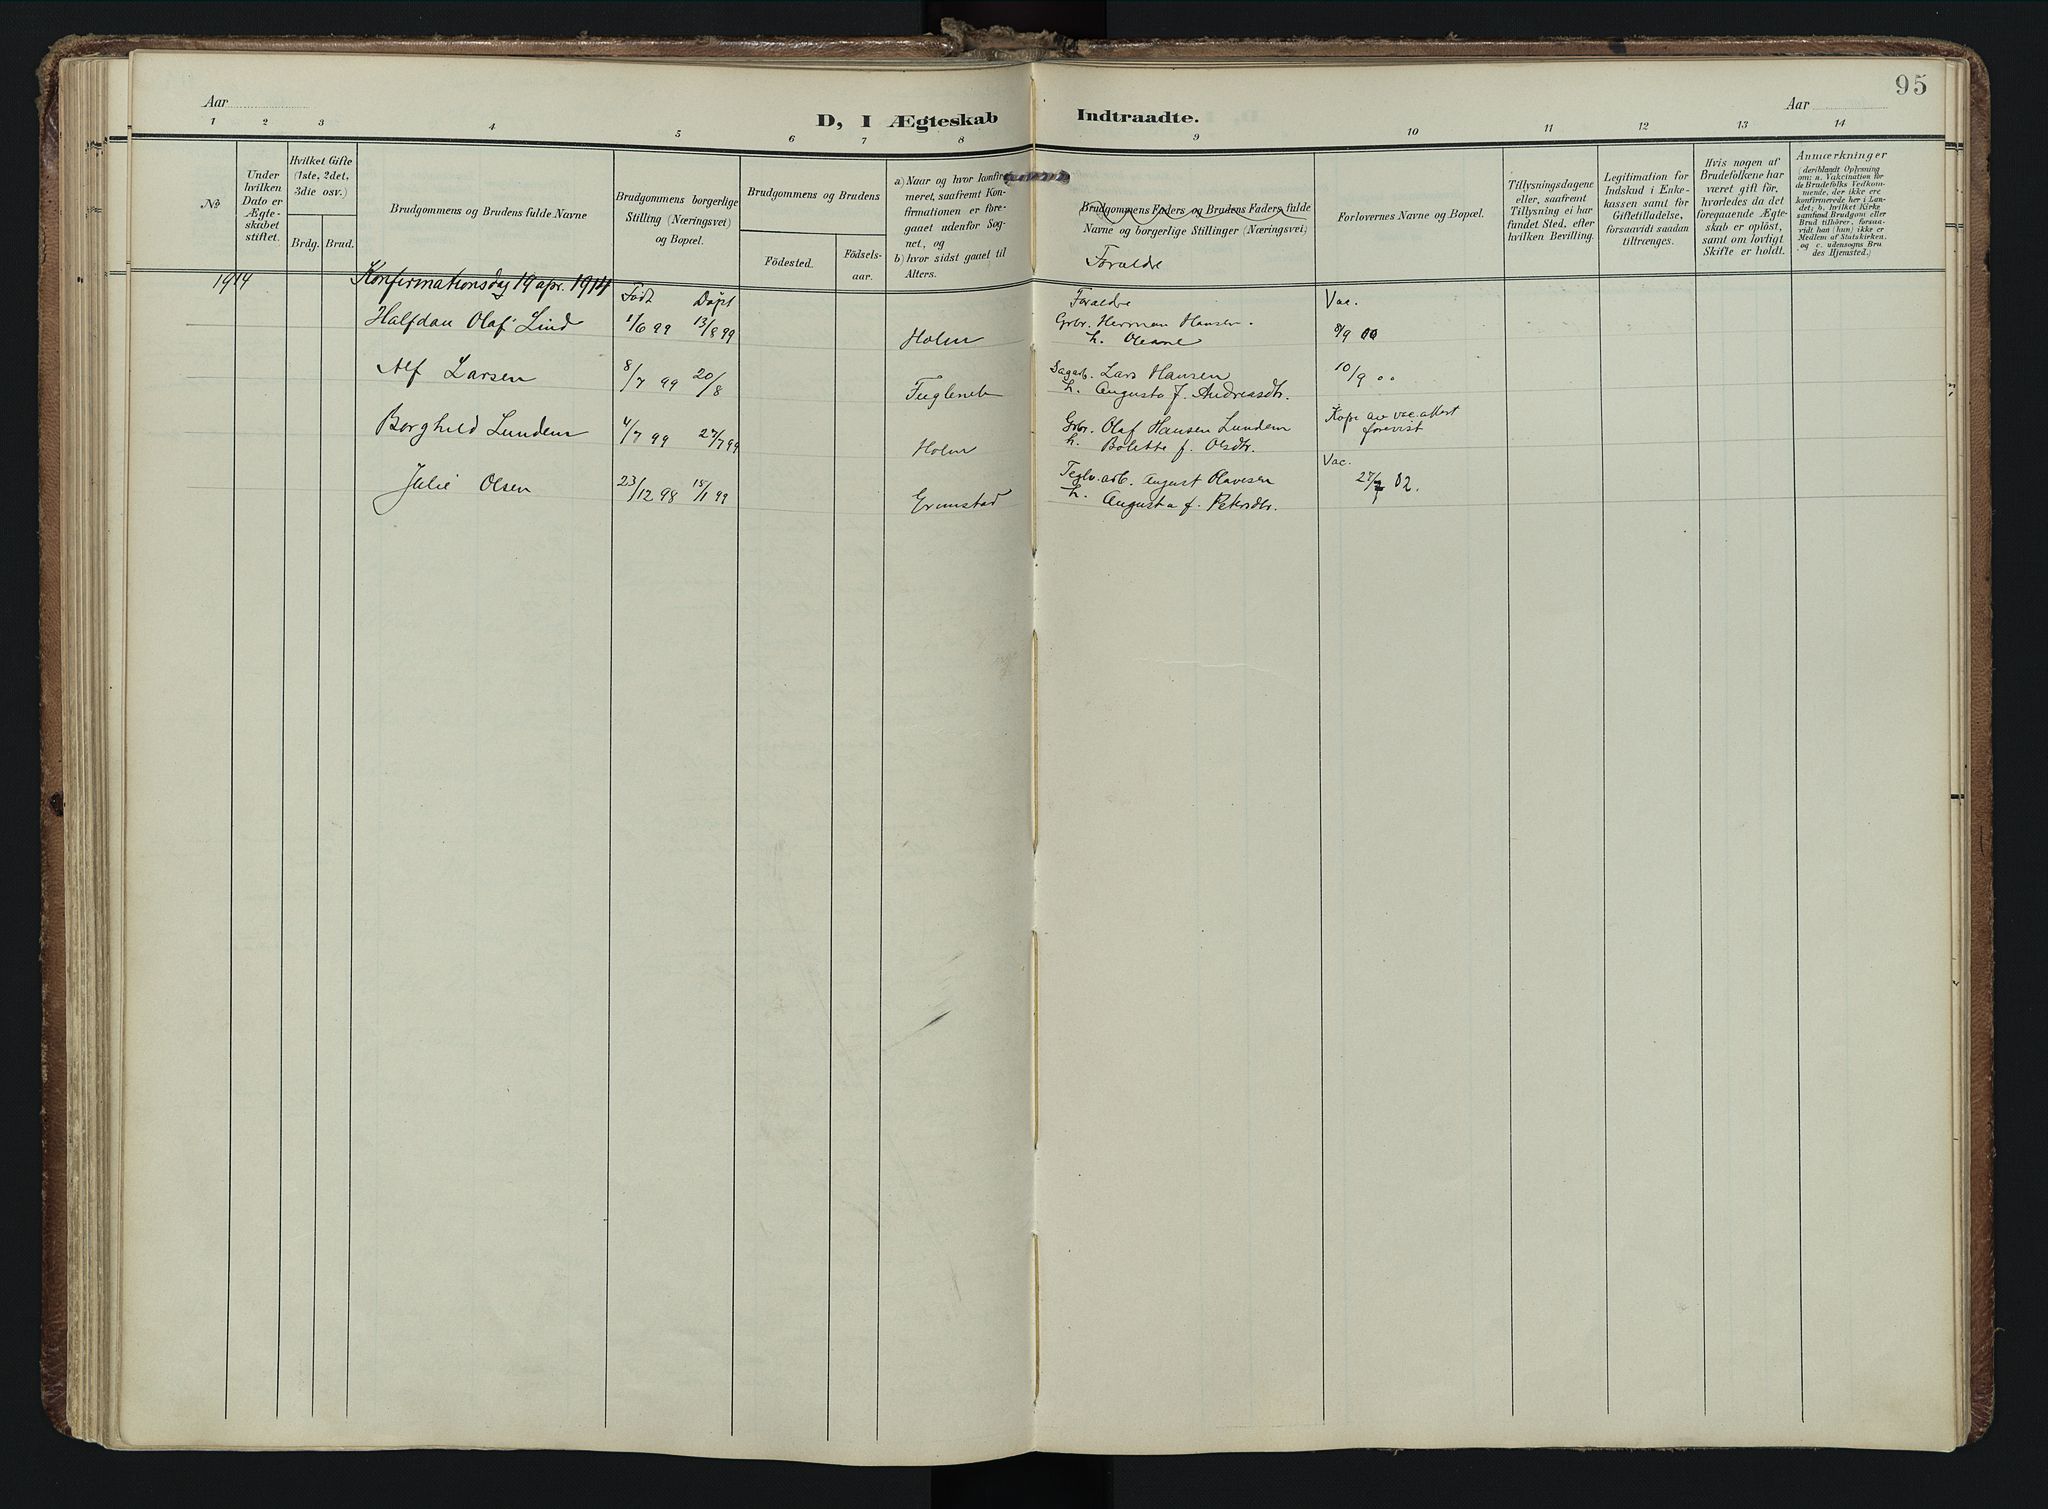 95
Aar
Aar
D, I Ægteskab Indtraadte.
1 2 3 4 5 6 7 8 9 10 11 12 13 14
No
Under hvilken Dato er Ægte-skabet stiftet.
Hvilket Gifte (1ste, 2det, 3die osv.)
Brdg. Brud.
Brudgommens og Brudens fulde Navne
Brudgommens borgerlige Stilling (Næringsvei) og Bopæl.
Brudgommens og Brudens
Födested. Födsels-aar.
a) Naar og hvor konfir-meret, saafremt Kon-firmationen er fore-gaaet udenfor Sog-net, og
b) hvor sidst gaaet til Alters.
Brudgommens Faders og Brudens Faders fulde Navne og borgerlige Stillinger (Næringsvei)
Foraldre
Forlovernes Navne og Bopæl.
Tillysningsdagene eller, saafremt Tillysning ei har fundet Sted, efter hvilken Bevilling.
Legitimation for Indskud i Enke-kassen samt for Giftetilladelse, forsaavidt saadan tiltrænges.
Hvis nogen af Brudefolkene har været gift før, hvorledes da det foregaaende Ægte-skab er oplöst, samt om lovligt Skifte er holdt.
Anmærkninger
(deriblandt Oplysning om: a. Vakcination for de Brudefolks Vedkom-mende, der ikke ere konfirmerede her i Lan-det; b. hvilket Kirke-samfund Brudgom eller Brud tilhörer, forsaa-vidt han (hun) ikke er Medlem af Statskirken, og c. udensogns Bru-des Hjemsted.)
1914 Konfirmationsdag 19 apr. 1914
Født Døpt
Foraldre
Vac.
Halfdan Olaf Lind 1/6 99 13/8 99 Holm
Grbr. Herman Hansen.
h. Oleane
8/9 00
Alf Larsen 8/7 99 20/8 Fugleneb
Dagarb. Lars Hansen
h. Augusta f. Andreasdtr.
10/9 00
Borghild Lunden 4/7 99 27/7 99 Holm
Grbr. Olaf Hansen Lunden
h. Bolette f. Olsdtr.
Kopi av vac. attest
forevist
Julie Olsen 23/12 98 15/1 99 Grimstad
Teglv.arb. August Olavesen
h. Augusta f. Petersdtr.
Vac.